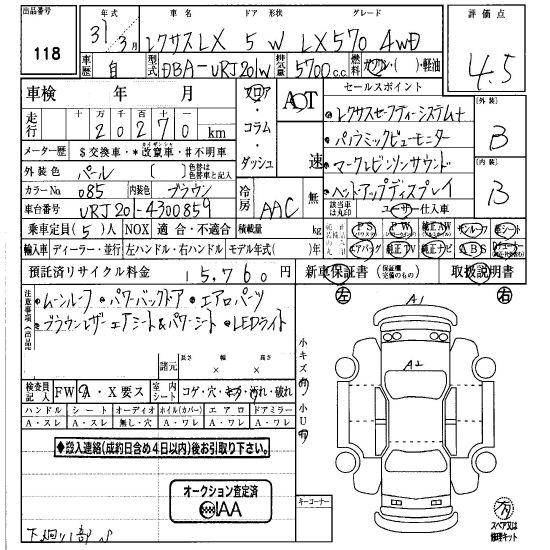 出品番号 118
年式 31年 3月
車名 レクサスLX
ドア 形状 5 W
グレード LX570 4WD
評価点 4.5
車歴 自
型式 DBA-URJ201W
排気量 5700 c.c.
燃料 ガソリン・( )・軽油
車検 年 月
フロア・コラム・ダッシュ
AOT 速
セールスポイント
レクサスセーフティーシステム+
パノラミックビューモニター
マークレビンソンサウンド
ヘッドアップディスプレイ
外装 B
内装 B
走行 十万 万 千 百 十 一
20270 km
メーター歴 $交換車・*改竄車・#不明車
外装色 パール
色替は色替車名と記入
カラーNo. 085 内装色 ブラウン
冷房 AAC
無
該当車は丸印
ユーザー・仕入車
車台番号 URJ201-4300859
乗車定員(5)人 NOX 適合・不適合 積載量 kg
PS PW サンルーフ 革シート
輸入車 ディーラー・並行 左ハンドル・右ハンドル モデル年式( )年
エアバッグ 純正TV 純正ナビ ABS
預託済リサイクル料金 15,760円
新車保証書 (保証継承 交換のもの) 取扱説明書
注意事項(出品店)
・ムーンルーフ ・パワーバックドア ・エアロパーツ
・ブラウンレザーエアシート&パワーシート ・LEDライト
左 A1 右
A2
小キズ有
小U有
諸元 長さ × 幅 × 高さ
検査員記入 FW・A・X要ス
室内シート コゲ・穴・キズ・汚れ・破れ
ハンドル シート オーディオ ホイル(カバー) エアロ ドアミラー
A・スレ A・スレ 無し・穴 A・ワレ A・ワレ A・ワレ
◆搬入連絡(成約日含め4日以内)後お引取り下さい。◆
オークション査定済
IAA
キーコーナー
スペア又は修理キット
下廻り一部サ